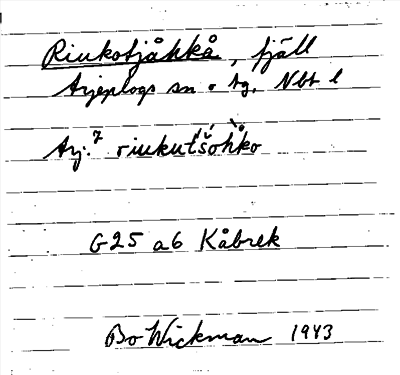 Riukotjåkkå, fjäll
Arjeplogs sn o tg, Nbt l
Arj.⁷ riukut́šohkò
G25 a6 Kåbrek
Bo Wickman 1943